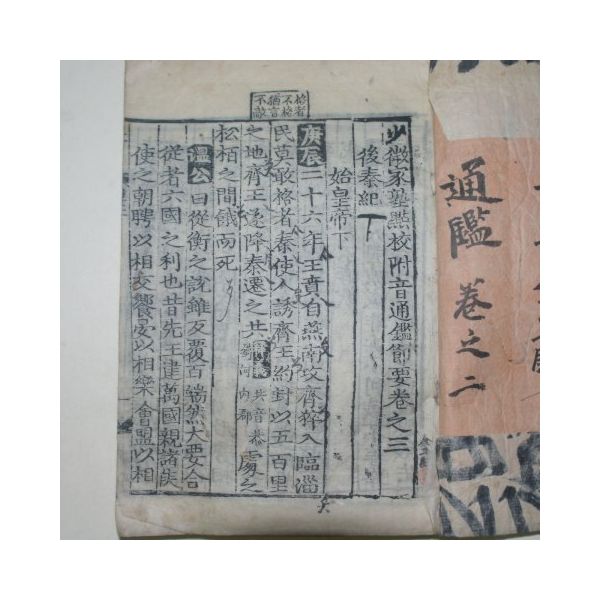 通鑑 卷之二
少微家塾㸃校附音通鑑節要卷之三
後秦紀
始皇帝下
庚辰 二十六年王賁自燕南攻齊猝入臨淄
民莫敢格者秦使人誘齊王約封以五百里
之地齊王遂降秦遷之共 共音恭 河內郡 處之
松柏之間餓而死
溫公 曰從衡之說雖反覆百端然大要合
從者六國之利也昔先王建萬國親諸侯
使之朝聘以相交饗宴以相樂會盟以相
格者
不格
猶言
不敵